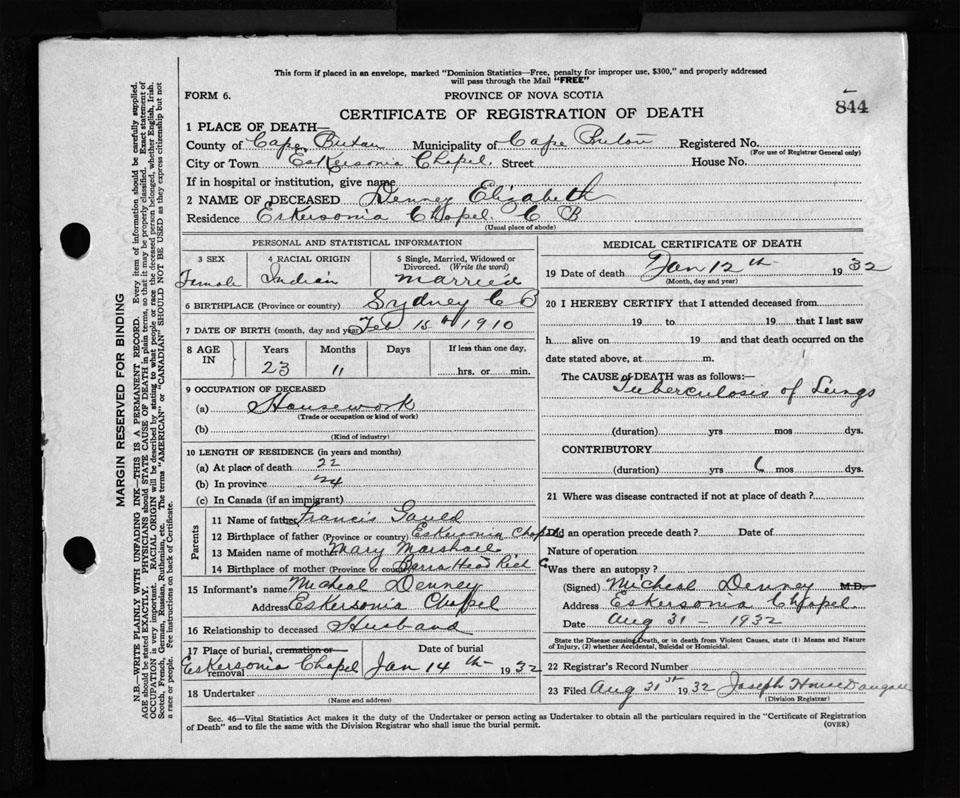 This form if placed in an envelope, marked "Dominion Statistics—Free, penalty for improper use, $300," and properly addressed
will pass through the Mail "FREE"
FORM 6.
PROVINCE OF NOVA SCOTIA
844
CERTIFICATE OF REGISTRATION OF DEATH
1 PLACE OF DEATH—
County of Cape Breton Municipality of Cape Breton Registered No.
(For use of Registrar General only)
City or Town Eskersonia Chapel. Street House No.
If in hospital or institution, give name
2 NAME OF DECEASED Denney Elizabeth
Residence Eskersonia Chapel. C B
(Usual place of abode)
PERSONAL AND STATISTICAL INFORMATION
3 SEX 4 RACIAL ORIGIN 5 Single, Married, Widowed or
Divorced. (Write the word)
Female Indian Married
6 BIRTHPLACE (Province or country) Sydney C B
7 DATE OF BIRTH (month, day and year) Feb 15th 1910
8 AGE IN Years Months Days If less than one day,
23 11 hrs. or min.
9 OCCUPATION OF DECEASED
(a) Housework
(Trade or occupation or kind of work)
(b)
(Kind of industry)
10 LENGTH OF RESIDENCE (in years and months)
(a) At place of death 22
(b) In province 24
(c) In Canada (if an immigrant)
Parents
11 Name of father Francis Gould
12 Birthplace of father (Province or country) Eskersonia Chapel
13 Maiden name of mother Mary Marshall
14 Birthplace of mother (Province or country) Barra Head Rich C
15 Informant's name Micheal Denney
Address Eskersonia Chapel
16 Relationship to deceased Husband
17 Place of burial, cremation or removal Date of burial
Eskersonia Chapel Jan 14 th 1932
18 Undertaker
MEDICAL CERTIFICATE OF DEATH
19 Date of death Jan 12 th 1932
(Month, day and year)
20 I HEREBY CERTIFY that I attended deceased from
19 to 19 that I last saw
h alive on 19 and that death occurred on the
date stated above, at m.
The CAUSE of DEATH was as follows:—
Tuberculosis of Lungs
(duration) yrs mos dys.
CONTRIBUTORY
(duration) yrs 6 mos dys.
21 Where was disease contracted if not at place of death ?
Did an operation precede death ? Date of
Nature of operation
Was there an autopsy ?
(Signed) Micheal Denney M.D.
Address Eskersonia Chapel.
Date Aug 31 - 1932
State the Disease causing Death, or in death from Violent Causes, state (1) Means and Nature
of Injury, (2) whether Accidental, Suicidal or Homicidal.
22 Registrar's Record Number
23 Filed Aug 31st 1932 Joseph
(Division Registrar)
Sec. 46—Vital Statistics Act makes it the duty of the Undertaker or person acting as Undertaker to obtain all the particulars required in the "Certificate of Registration
of Death" and to file the same with the Division Registrar who shall issue the burial permit.
(OVER)
MARGIN RESERVED FOR BINDING
N.B.—WRITE PLAINLY WITH UNFADING INK—THIS IS A PERMANENT RECORD. Every item of information should be carefully supplied.
AGE should be stated EXACTLY. PHYSICIANS should STATE CAUSE OF DEATH in plain terms, so that it may be properly classified. Exact statement of
OCCUPATION is very important. RACIAL ORIGIN will be described by stating to what people or race the deceased person belonged, whether English, Irish,
Scotch, French, German, Russian, Ruthenian, etc. The terms "AMERICAN" or "CANADIAN" SHOULD NOT BE USED as they express citizenship but not
a race or people. Fee instructions on back of Certificate.